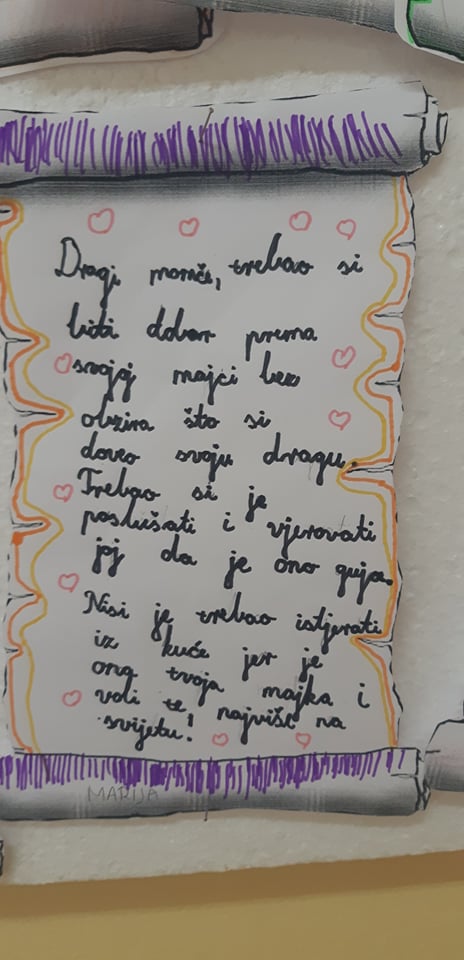 Dragi momče, trebao si
biti dobar prema
svojoj majci bez
obzira što si
doveo svoju dragu.
Trebao si je
poslušati i vjerovati
joj da je ono guja.
Nisi je trebao istjerati
iz kuće jer je
ona tvoja majka i
voli te najviše na
svijetu!
MARIJA